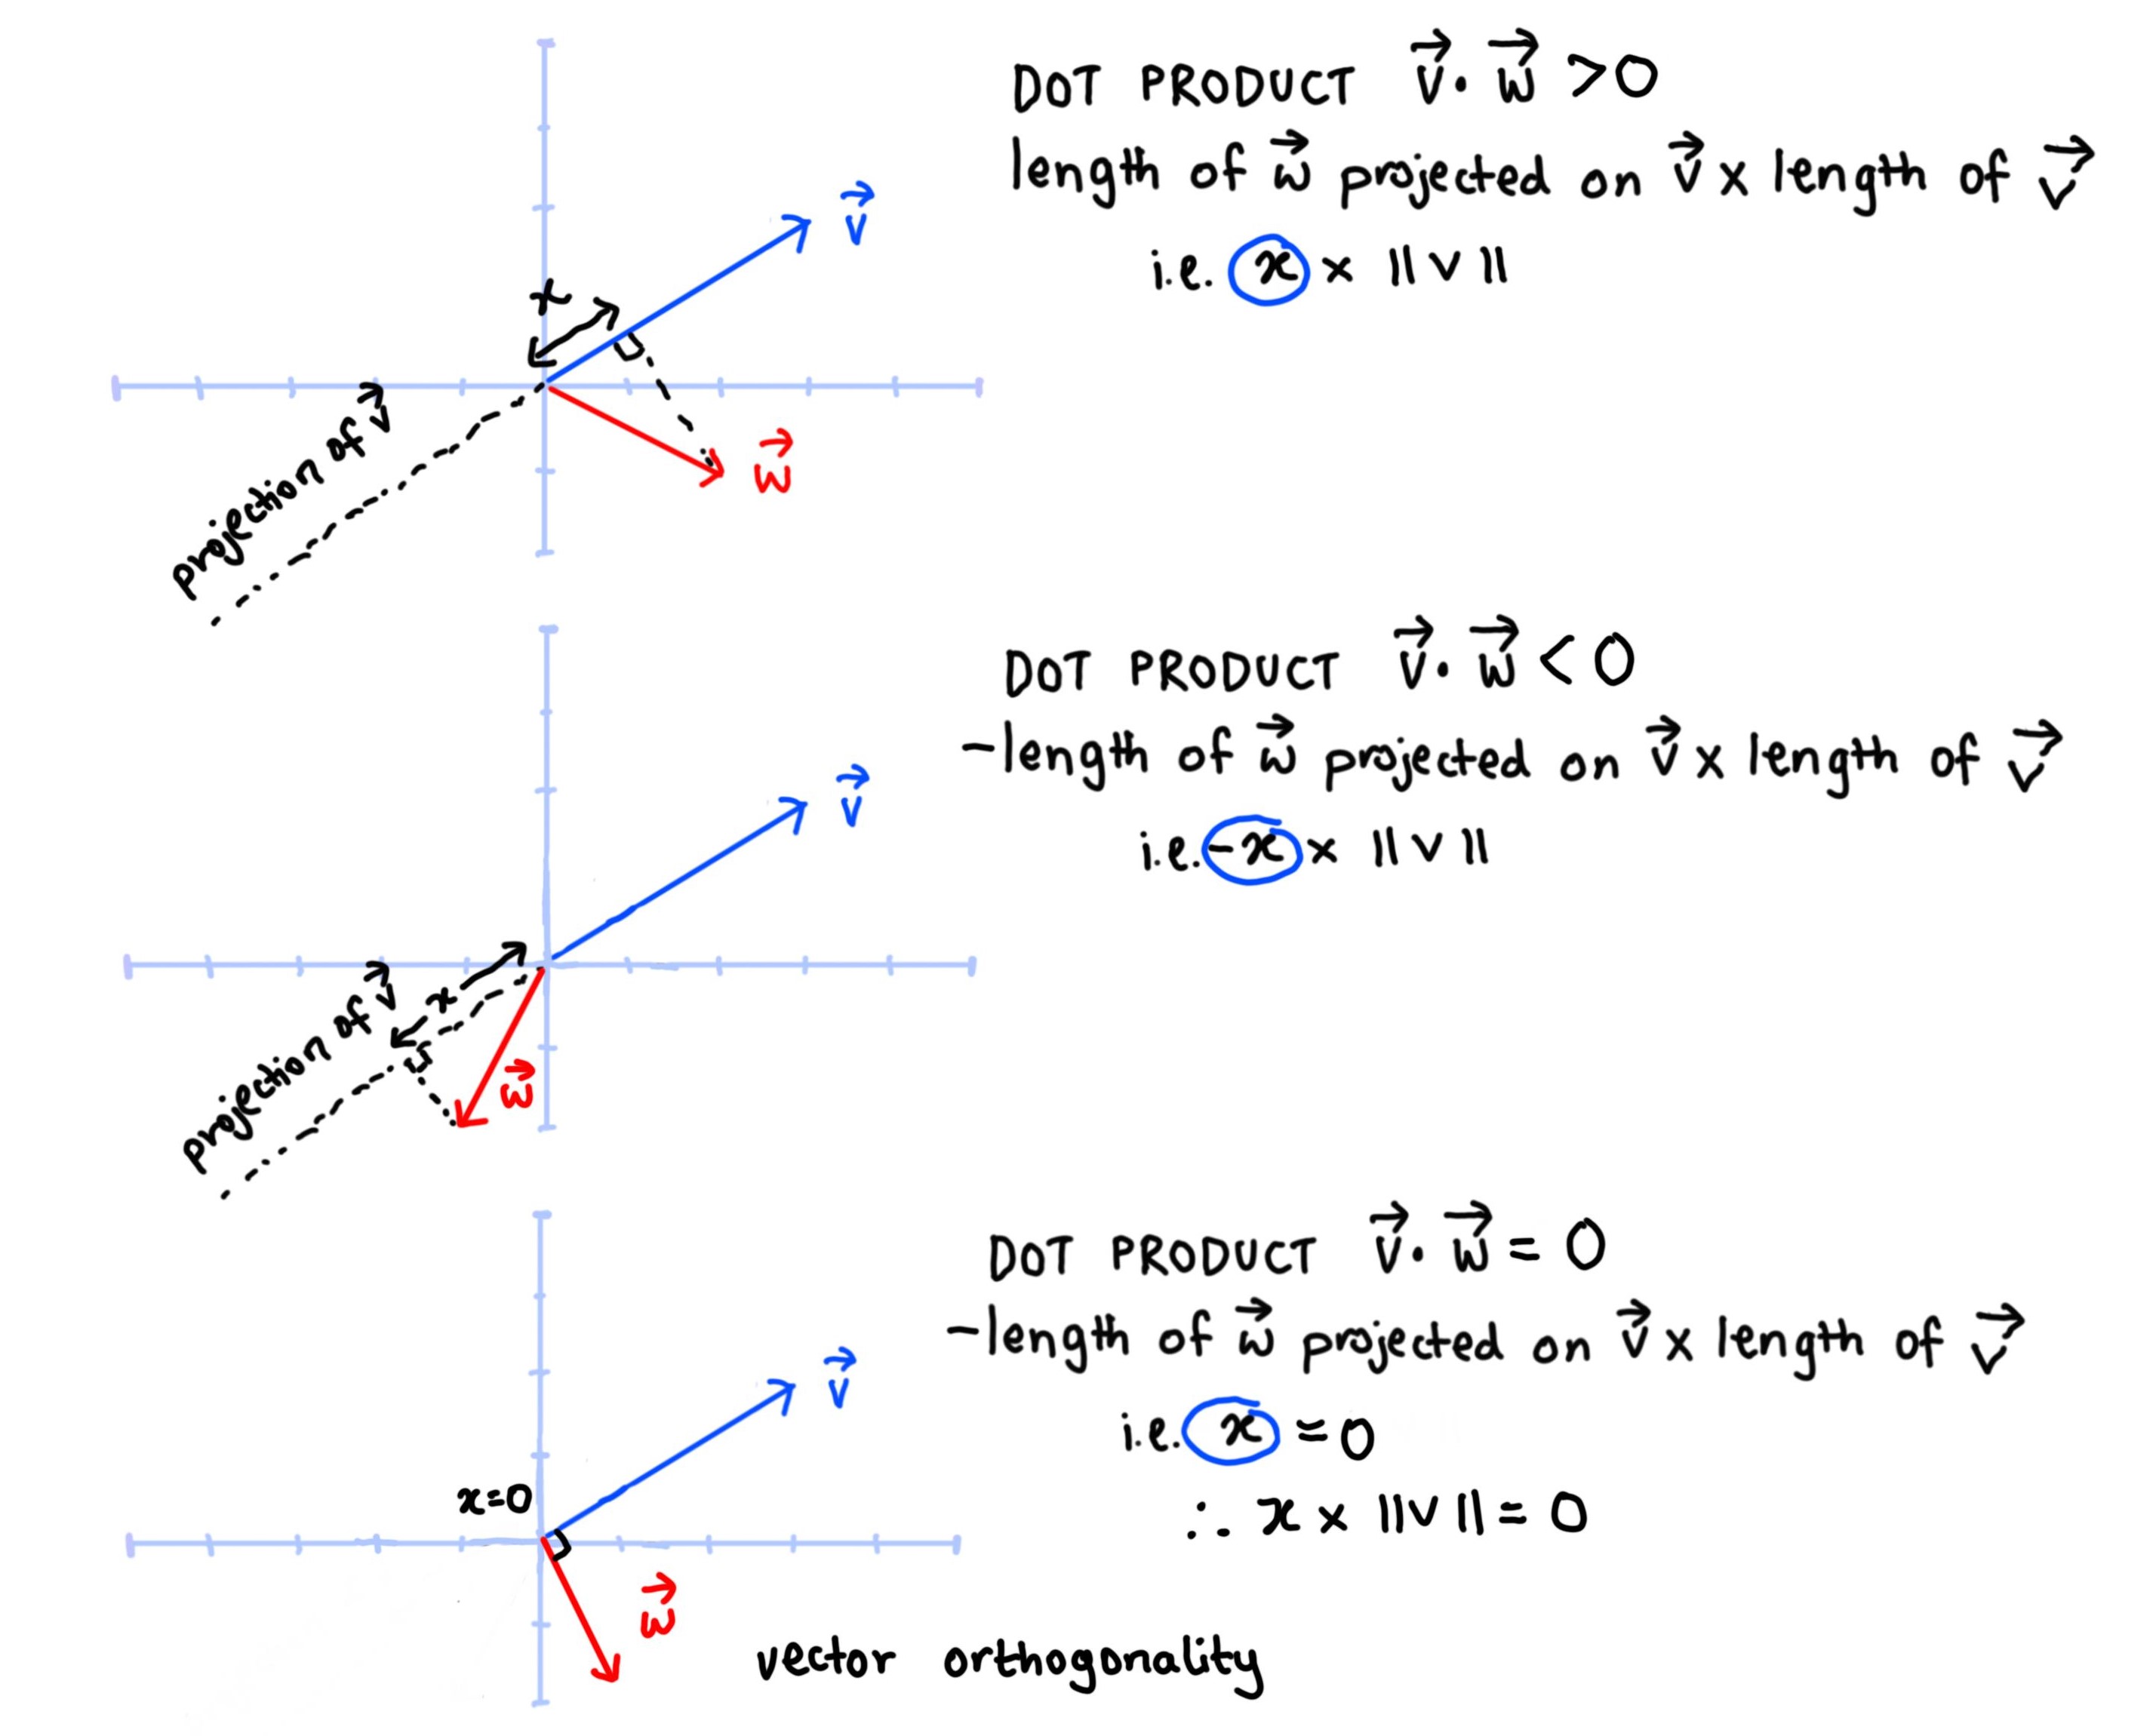 DOT PRODUCT v⃗ · w⃗ >0
length of w⃗ projected on v⃗ x length of v⃗
i.e. x × || v ||
v⃗
x
projection of v⃗
w⃗
DOT PRODUCT v⃗ · w⃗ < 0
-length of w⃗ projected on v⃗ x length of v⃗
i.e. -x × || v ||
v⃗
x
projection of v⃗
w⃗
DOT PRODUCT v⃗ · w⃗ = 0
-length of w⃗ projected on v⃗ x length of v⃗
v⃗
i.e. x = 0
x=0
∴ x × ||v || = 0
w⃗
vector orthogonality